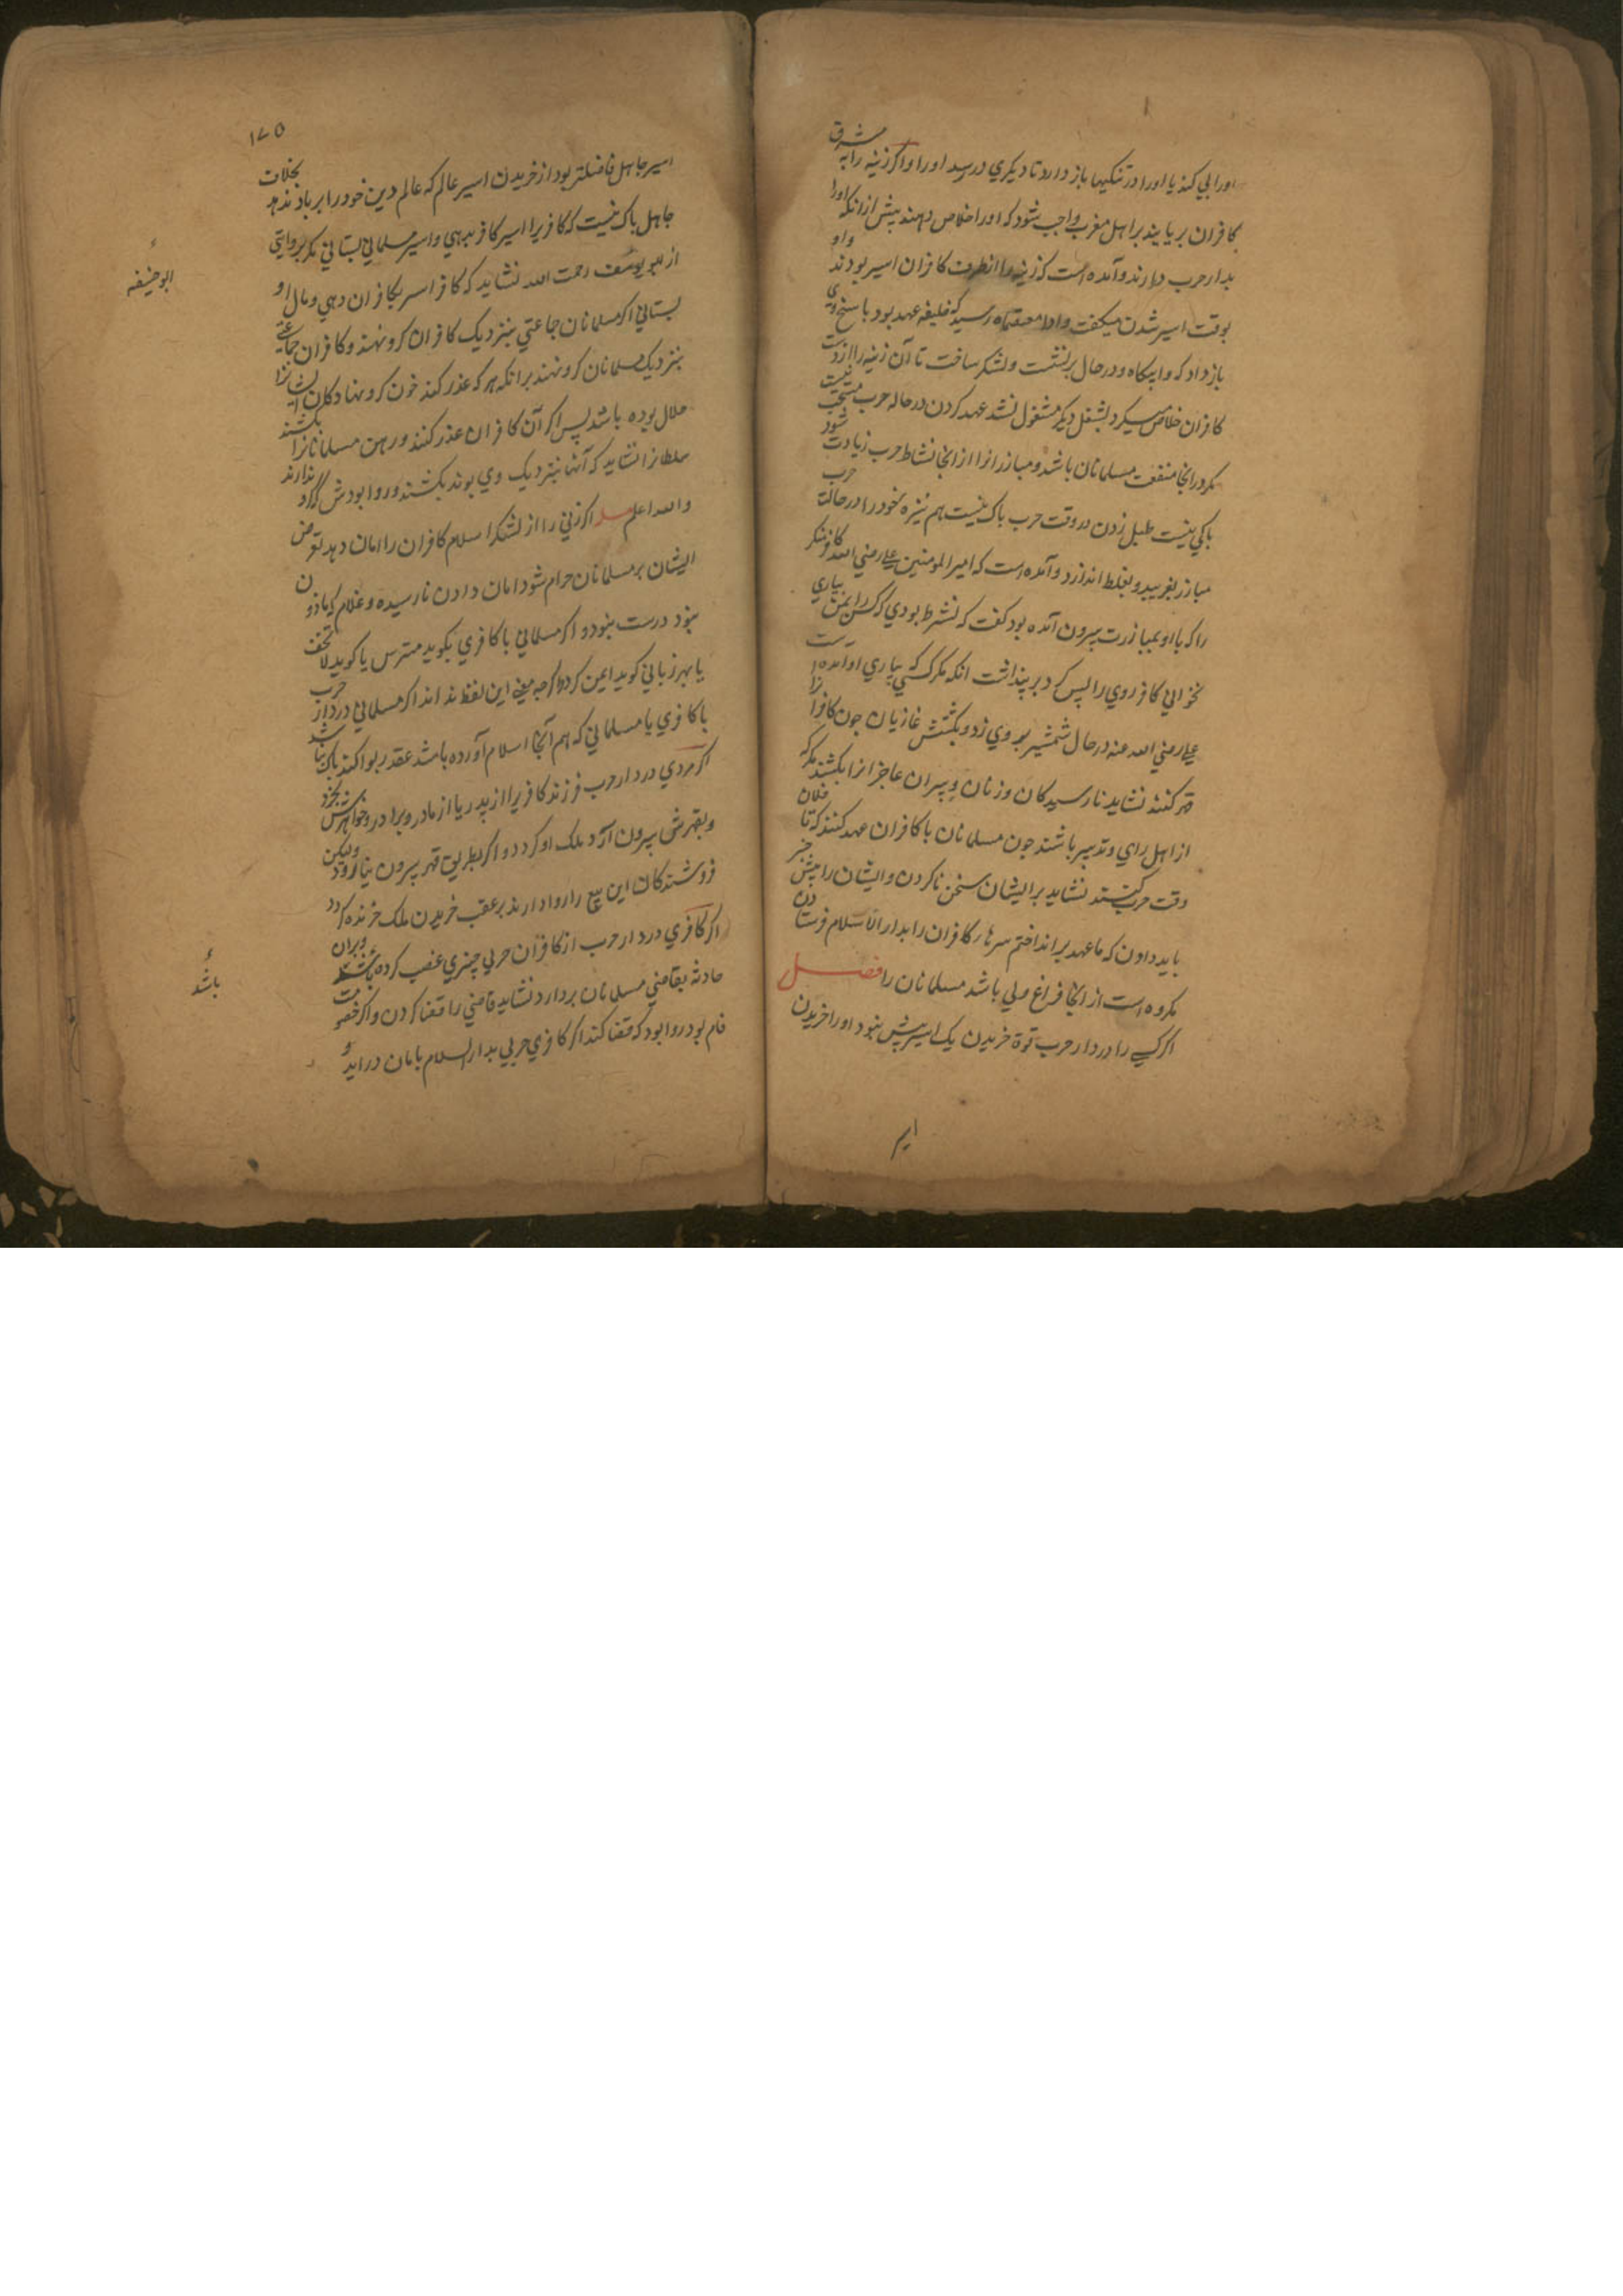 اورا پی کند یا اورا در تنکیها باز دارد تا دیکری در رسد اورا واکر زنیه را به مشرق
کافران بربایند بر اهل مغرب واجب شود که اورا خلاص دهند پیش ازانکه اورا
بدار حرب درارند وآمده است که زنیه را ازطرف کافران اسیر بودند واو
بوقت اسیر شدن میکفت وا معتصماه رسید که خلیفه عهد بود پاسخ وی
باز داد که وا لبیکاه ودر حال برنشست ولشکر ساخت تا آن زنیه را از دست
کافران خلاص میکرد بشغل دیکر مشغول نشد عهد کردن در حاله حرب مستحب نیست
مکر درانجا منفعت مسلمانان باشد ومبارزانرا ازانجا نشاط حرب زیادت شود
باکی نیست طبل زدن در وقت حرب باک نیست هم نیزه خود را در حالت حرب
مبارز بفریبد وبغلط اندازد وآمده است که امیر المومنین علی رضی الله عنه کافر
را که با او بمبارزت بیرون آمده بود کفت که نشرط بودی که کس را بمن یاری
نخوانی کافر روی را پس کرد بر پنداشت انکه مکر کسی که یاری او آمده است
علی رضی الله عنه در حال شمشیر بروی زد وبکشتش غازیان جون کافرانرا
قهر کنند نشاید نارسیدکان وزنان وپیران عاجزانرا بکشند مکرکه
از اهل رای وتدبیر باشند جون مسلمانان با کافران عهد کنند که تا فلان
وقت حرب نکنند نشاید برایشان سخن ناکردن وایشان را پیش خبر
باید دادن که ما عهد بر انداختم سرهاء کافران را بدار الاسلام فرستادن
مکروه است از انجا فراغ ولی باشد مسلمانان را فصل
اکر کسی را در دار حرب قوة خریدن یک اسیر بیش نبود اورا خریدن
ایر
۱۷۵
اسیر جاهل فاضلتر بود از خریدن اسیر عالم که عالم دین خود را بر باد ندهد بخلاف
جاهل باک نیست که کافریرا اسیر کافر بدهی واسیر مسلمانی بستانی مکر بروایتی
از ابو یوسف رحمت الله نشاید که کافر اسیر بکافران دهی ومال او
ابو حنیفه
بستانی اکر مسلمانان جاعتی بنزدیک کافران کرو نهند وکافران جماعتی
بنزدیک مسلمانان کرو نهند برانکه هر که عذر کند خون کرو نهادکان ایشانرا
حلال بوده باشد پس اکر آن کافران عذر کنند ورهن مسلمانانرا بکشند
سلطانرا نشاید که آنها بنزدیک وی بوند بکشند وروا بودش که ندارند
والله اعلم مسله اکر زنی را از لشکر اسلام کافران را امان دهد تعرض
ایشان بر مسلمانان حرام شود امان دادن نارسیده وغلام که ماذون
نبود درست نبود واکر مسلمانی با کافری بکوید مترس یا کوید لاتخف
یا بهر زبانی کوید ایمن کردد اکرجه معنی این لفظ نداند اکر مسلمانی در دار حرب
با کافری یا مسلمانی که هم آنجا اسلام آورده باشد عقد ربوا کند باک نباشد
اکر مردی در دار حرب فرزند کافریرا از پدر یا از مادر وبرادر وخواهرش بخرد
وبقهرش بیرون آرد ملک او کردد واکر بطریق قهر بیرون نیارود ولیکن
فروشندکان این بیع را روا دارند بر عقب خریدن ملک خرنده کردد
اکر کافری در دار حرب از کافران حربی چیزی غصب کرده وبران
باشد
حادثه بقاضی مسلمانان بردارد نشاید قاضی را قضا کردن واکر خصومت
قام بود روا بود که قضا کند اکر کافری حربی بدار السلام بامان دراید و